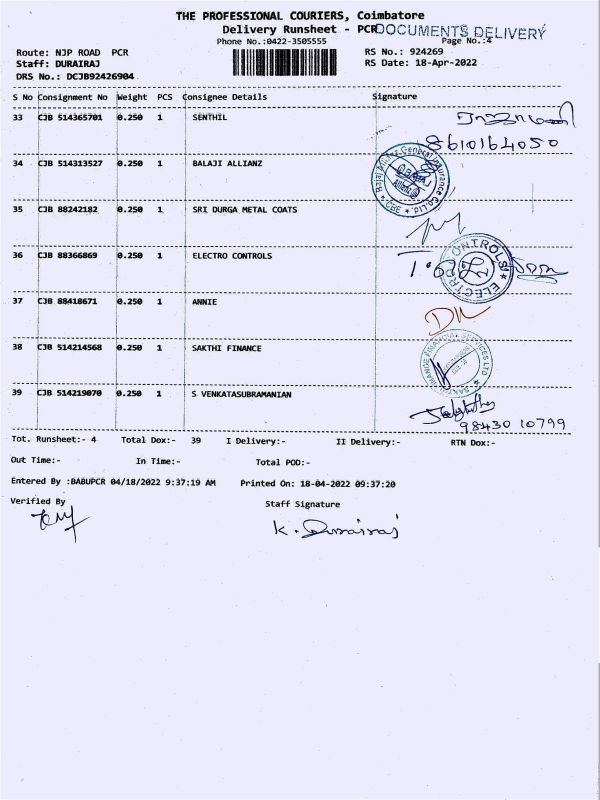 THE PROFESSIONAL COURIERS, Coimbatore
Delivery Runsheet - PCR DOCUMENTS DELIVERY
Phone No.:0422-3505555 Page No.:4
Route: NJP ROAD PCR RS No.: 924269
Staff: DURAIRAJ RS Date: 18-Apr-2022
DRS No.: DCJB92426904
S No Consignment No Weight PCS Consignee Details Signature
33 CJB 514365701 0.250 1 SENTHIL
8610164050
34 CJB 514313527 0.250 1 BALAJI ALLIANZ
35 CJB 88242182 0.250 1 SRI DURGA METAL COATS
36 CJB 88366869 0.250 1 ELECTRO CONTROLS
37 CJB 88418671 0.250 1 ANNIE
38 CJB 514214568 0.250 1 SAKTHI FINANCE
39 CJB 514219070 0.250 1 S VENKATASUBRAMANIAN
98430 10799
Tot. Runsheet:- 4 Total Dox:- 39 I Delivery:- II Delivery:- RTN Dox:-
Out Time:- In Time:- Total POD:-
Entered By :BABUPCR 04/18/2022 9:37:19 AM Printed On: 18-04-2022 09:37:20
Verified By Staff Signature
K. Durairaj